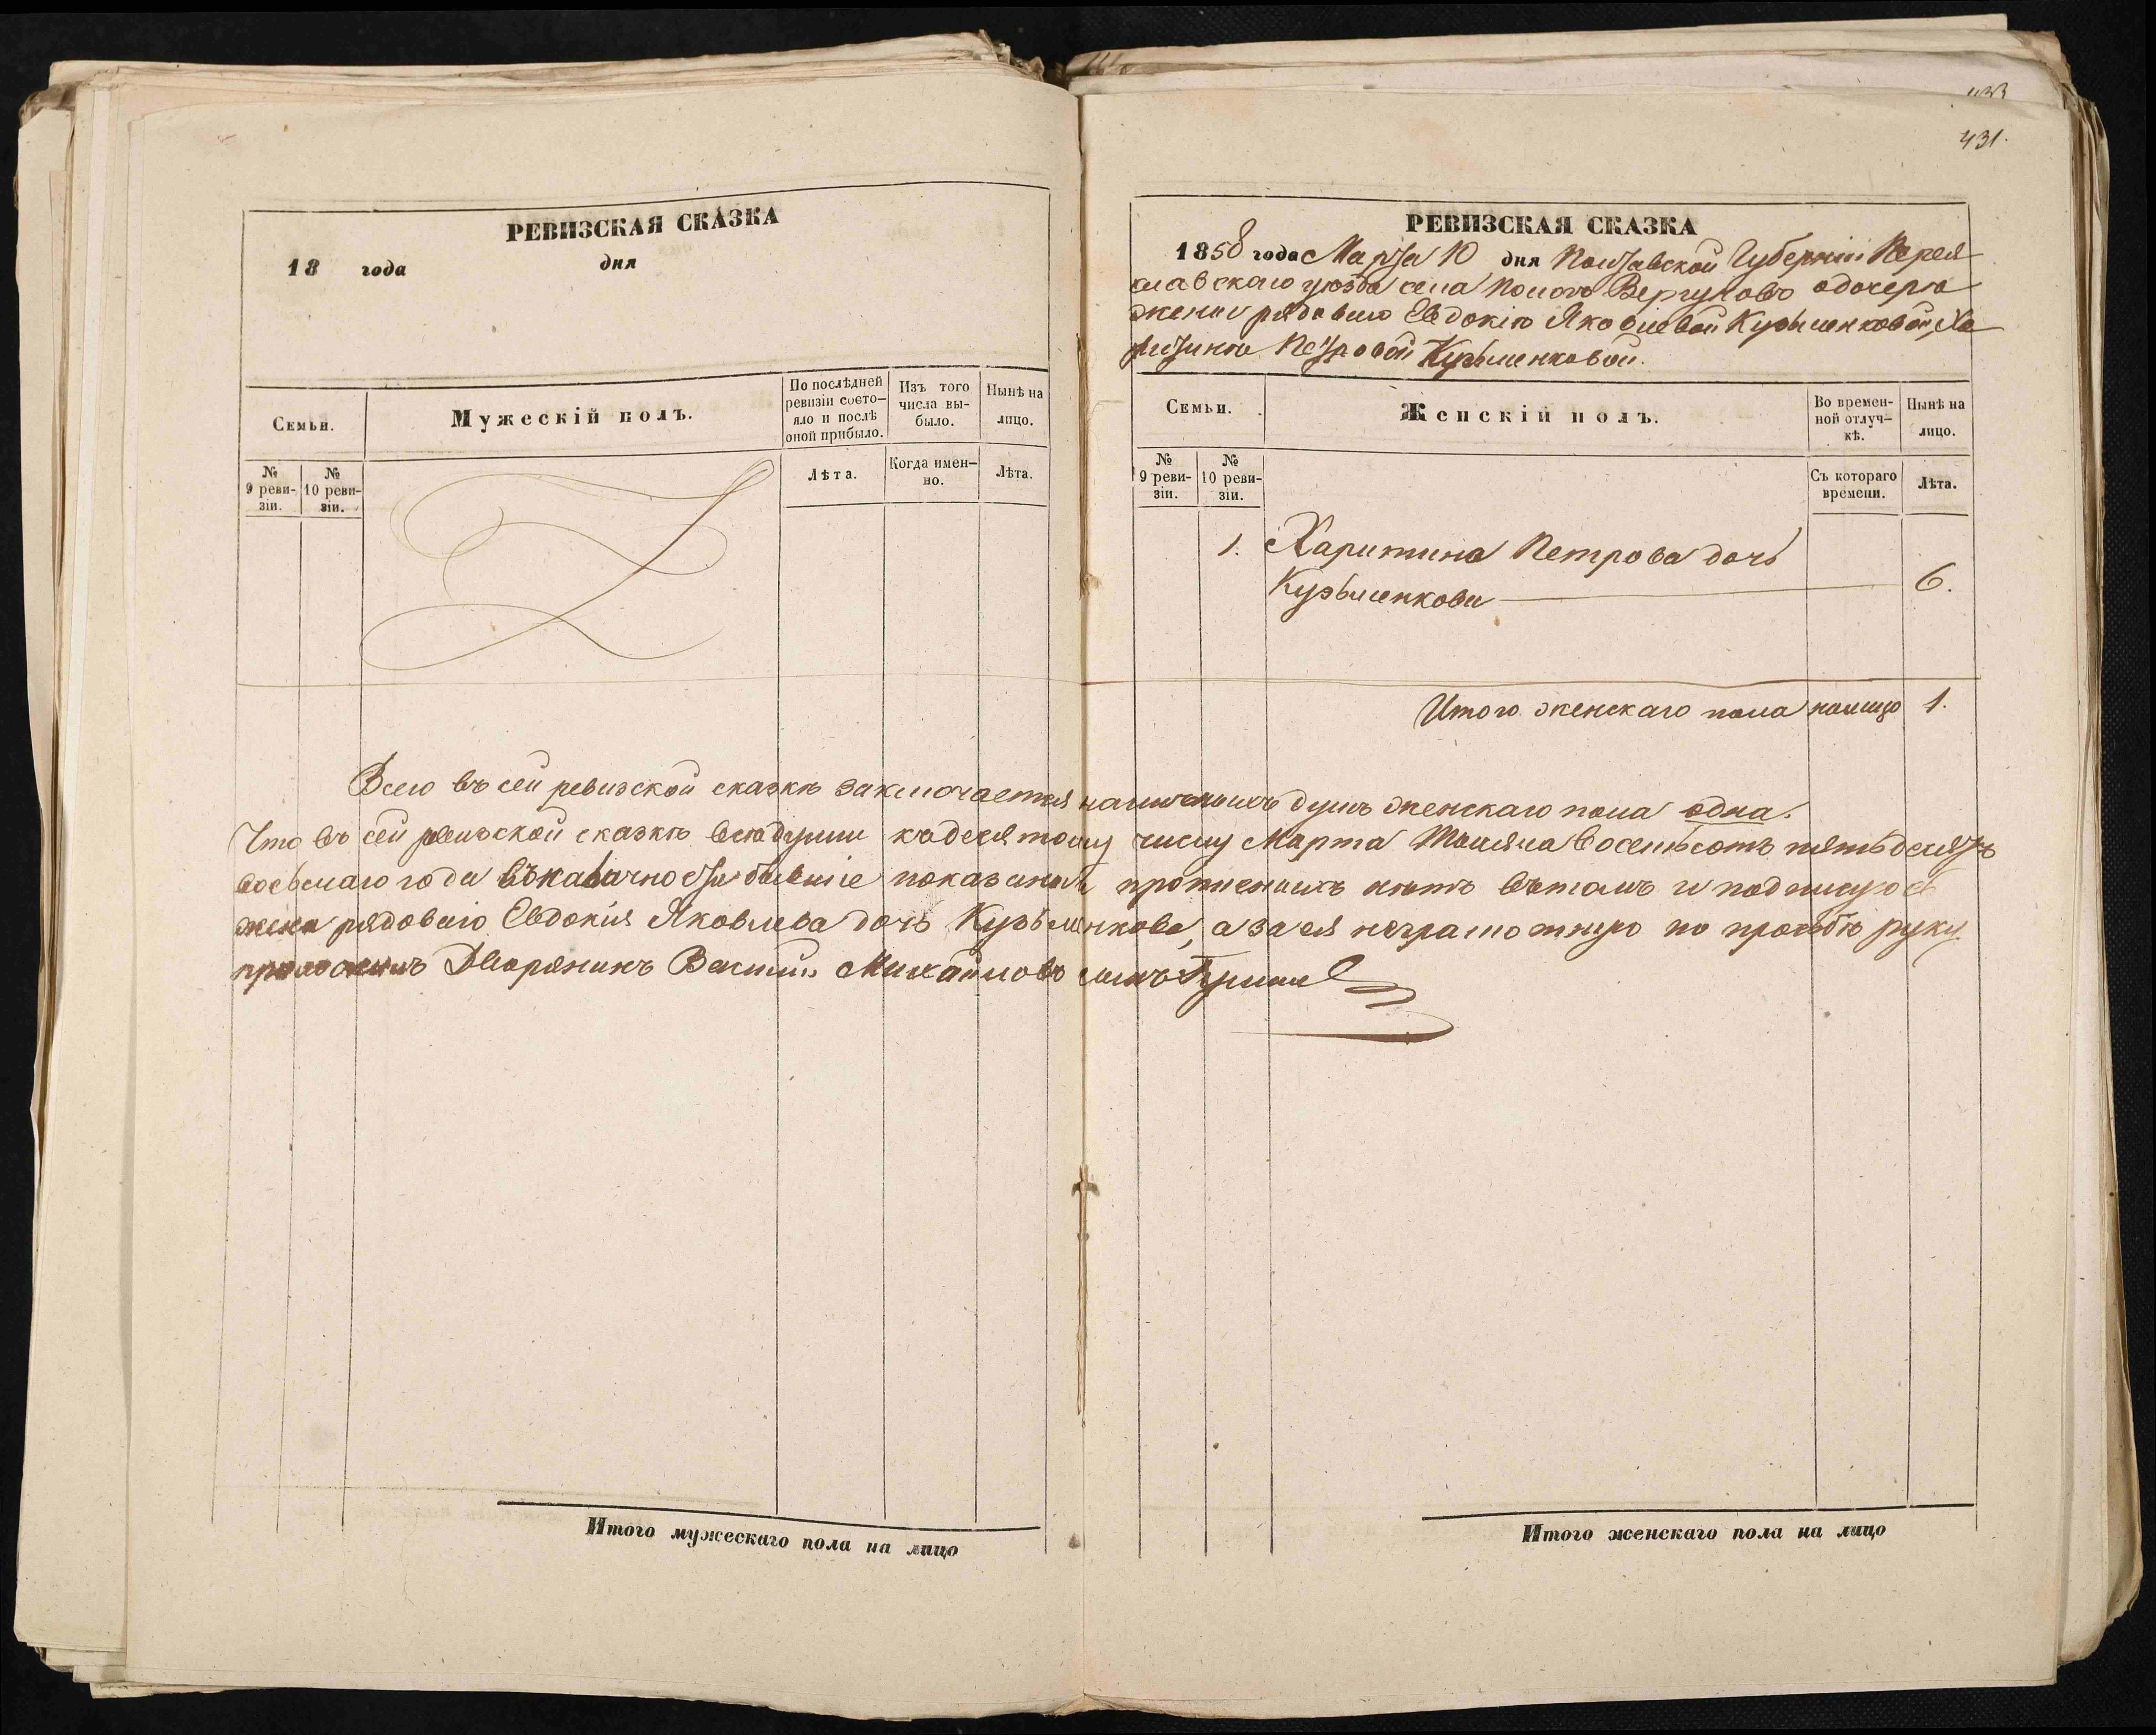 433
431.
РЕВИЗСКАЯ СКАЗКА
18 года дня
Семьи.
Мужескій полъ.
По послѣдней ревизіи состо-
яло и послѣ оной прибыло.
Изъ того числа вы-
было.
Нынѣ на лицо.
№ 9 реви-
зіи.
№ 10 реви-
зіи.
Лѣта.
Когда имен-
но.
Лѣта.
РЕВИЗСКАЯ СКАЗКА
1858 года Марта 10 дня Полтавской Губерніи Перея
славскаго уѣзда села Вергуновъ о дочерѣ
жены рядоваго Евдокіи Яковлевой Кузьменковой, Ха
ритинѣ Петровой Кузьменковой.
Семьи.
Женскій полъ.
Во времен-
ной отлуч-
кѣ.
Нынѣ на лицо.
№ 9 реви-
зіи.
№ 10 реви-
зіи.
Съ котораго времени.
Лѣта.
1. Харитина Петрова дочь
Кузьменкова 6.
Итого женскаго пола налицо 1.
Всего въ сей ревизской сказкѣ заключается наличныхъ душъ женскаго пола одна.
Что въ сей ревизской сказкѣ всѣ души къ десятому числу Марта Тысяча восемьсотъ пятьдесятъ
восьмаго года въ наличности бывшіе показаны и прописныхъ нѣтъ въ томъ и подписуюсь
жена рядоваго Евдокія Яковлева дочь Кузьменкова, а за ея неграмотную по прозьбѣ руку
приложилъ Дворянинъ Василій Михайловъ сынъ
Итого мужескаго пола на лицо
Итого женскаго пола на лицо